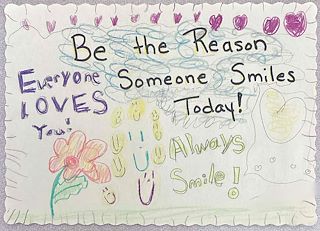 Be the Reason
Someone Smiles
Today!
Everyone
LOVES
You!
Always
Smile!